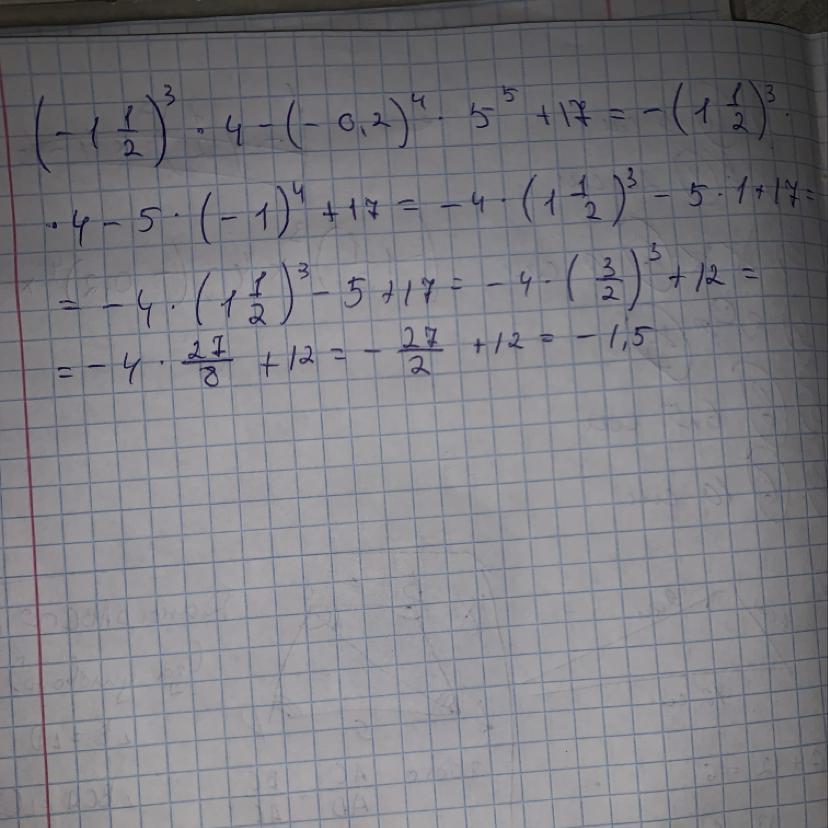 (-1 1/2)^3 · 4 - (-0,2)^4 · 5^5 + 17 = -(1 1/2)^3 ·
· 4 - 5 · (-1)^4 + 17 = -4 · (1 1/2)^3 - 5 · 1 + 17 =
= -4 · (1 1/2)^3 - 5 + 17 = -4 · (3/2)^3 + 12 =
= -4 · 27/8 + 12 = - 27/2 + 12 = -1,5